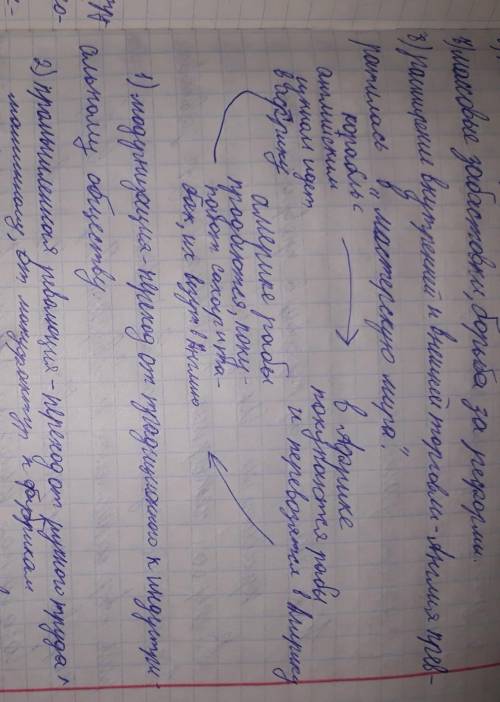 7) массовые забастовки, борьба за реформы.
8) расширение внутренней и внешней торговли - Англия прев-
ратилась в "мастерскую мира".
корабль с
английским
идет
в Африку
в Африке
покупаются рабы
и перевозятся в Америку
америке рабы
продаются, поку-
их везут в Англию
1) модернизация - переход от традиционного к индустри-
альному обществу.
2) промышленная революция - переход от ручного труда к
машинному, от мануфактур к фабрикам